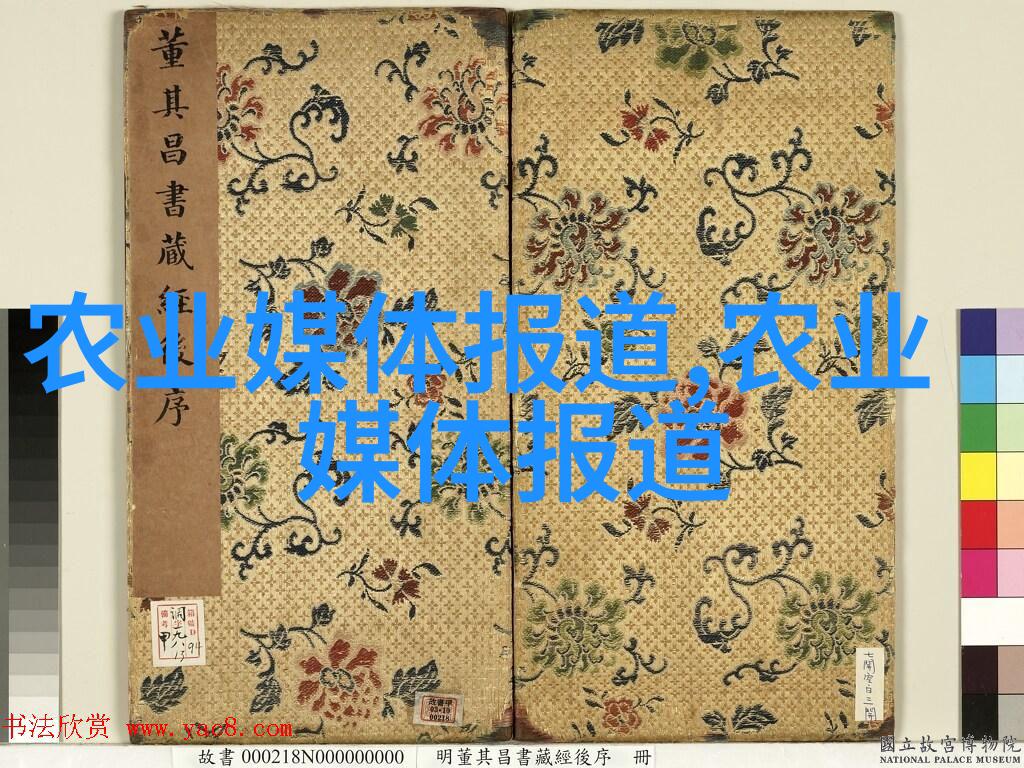 董其昌書蔵經後序
农业媒体报道,农业
媒体报道
箱號D
備考
调字九八
13
94
甲
故書甲
03-10
00218
七開空白三開
书法欣赏 www.yac8.com
故書 000218N000000000
明董其昌書藏經後序 冊
國立故宮博物院
NATIONAL PALACE MUSEUM